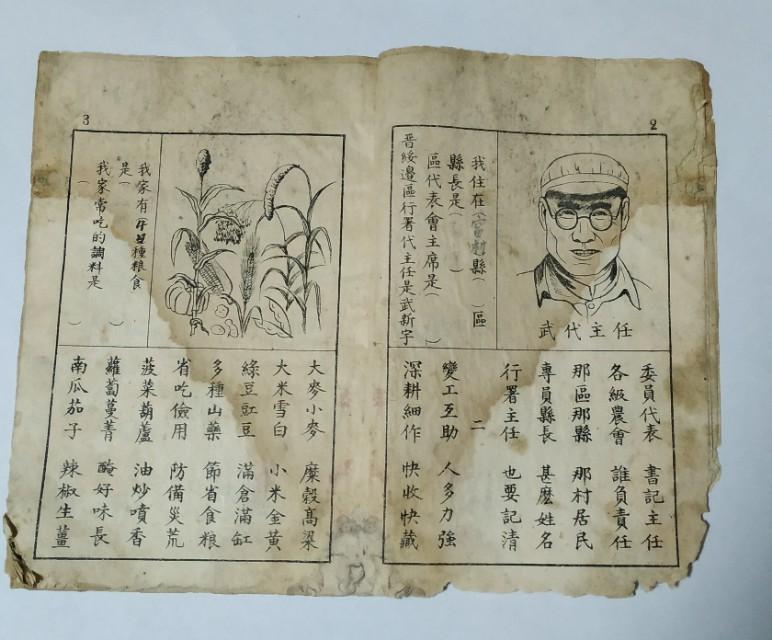 2
武代主任
我住在（ 縣（ ）區
縣長是（ ）
區代表會主席是（ ）
晋綏邊區行署代主任是武新宇
委員代表 書記主任
各級農會 誰負責任
那區那縣 那村居民
專員縣長 甚麽姓名
行署主任 也要記清
二
變工互助 人多力強
深耕細作 快收快藏
3
我家有（ 種糧食
是（ ）
我家常吃的調料是（ ）
大麥小麥 糜穀高粱
大米雪白 小米金黃
綠豆豇豆 滿倉滿缸
多種山藥 節省食粮
省吃儉用 防備災荒
菠菜葫蘆 油炒噴香
蘿蔔蔓菁 醃好味長
南瓜茄子 辣椒生薑